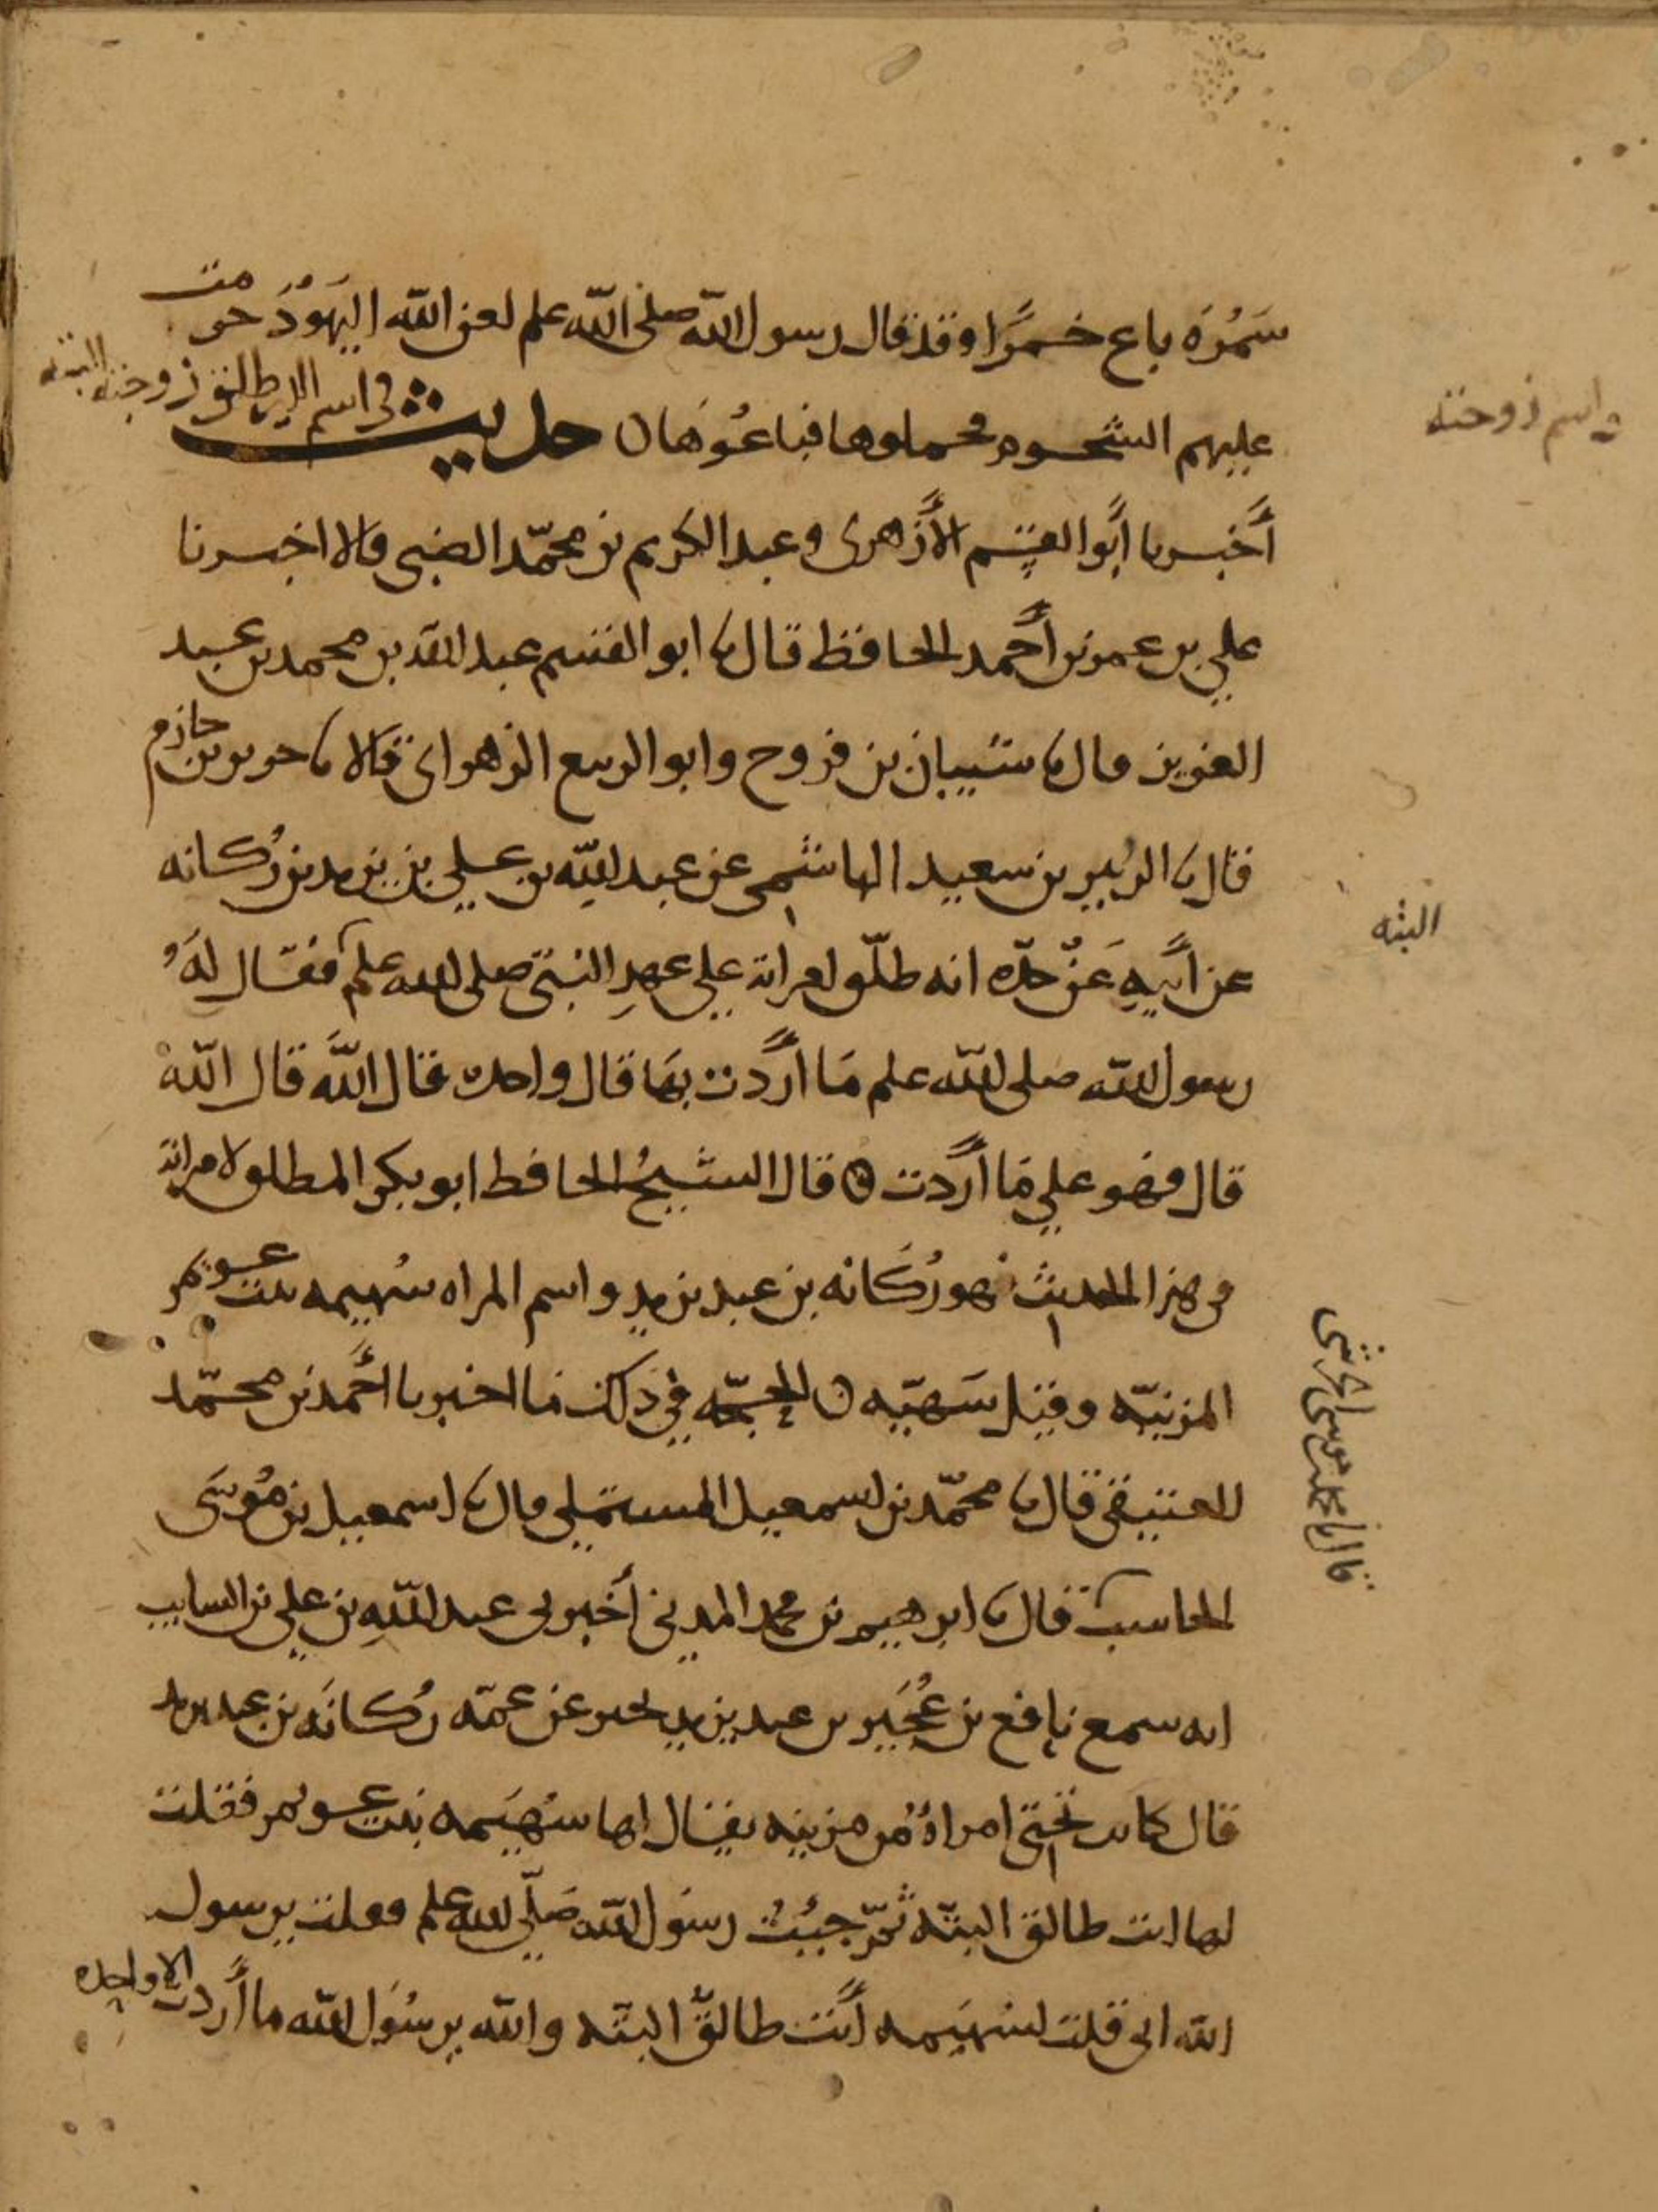 سَمُرَه باع خمرًا وقد قال رسول الله صلى الله علم لعن الله اليَهُودَ حرمت
عليهم الشحوم فجملوها فباعُوهَا ن حديث في اسم الذي طلق زوجته البته
واسم زوجته
أَخبرنا أَبُوا القسم الأَزهرى وعبد الكريم بن محمّد الضبى قالا اخبرنا
علي بن عمر بن أَحمد الحافظ قال نا ابو القسم عبد الله بن محمد بن عبد
العزيز قال نا شيبان بن فروح وابو الربيع الزهرانى قالا نا جرير بن حازم
قال نا الزبير بن سعيد الهاشمى عن عبد الله بن علي بن يزيد بن رُكانه
عن أَبيهِ عَن جدّه انه طلّق امراته علي عهدِ النبىّ صلى الله علم فقال لَهُ
البته
رسول الله صلى الله علم مَا أَرَدت بهَا قال واحده قال اللَّه قال اللّه
قال فهو علي مَا أَرَدت ه قال الشيخُ الحافظ ابو بكر المطلق لامراته
في هذا الحديث هو رُكَانه بن عبد يزيد واسم المراه سُهيمه بنت عويمر
المزنيّه وقيل سَهيّه ن الحجّه في ذلك ما اخبرنا أَحمد بن محمّد
العتيقى قال نا محمّد بن اسمعيل المستملي قال نا اسمعيل بن مُوسَى
قال نا محمد بن موسى الحرشى
الحاسب قال نا ابرهيم بن محمد المدينى أَخبرنى عبد اللّهِ بن علي بن السايب
انه سمع نافع بن عُجَير بن عبد يزيد يخبر عن عمّه رُكانَه بن عبد يزيد
قال كانت تحتى امراةٌ من مزينه يقال لها سُهَيمه بنت عويمر فقلت
لها انت طالق البتّه ثمّ جيتُ رسُول اللّه صَلّى الله علم فقلت يرسول
الله انى قلت لسُهَيمه أَنت طالقٌ البتّه والله يرسُول الله ما أَردت الا واحده